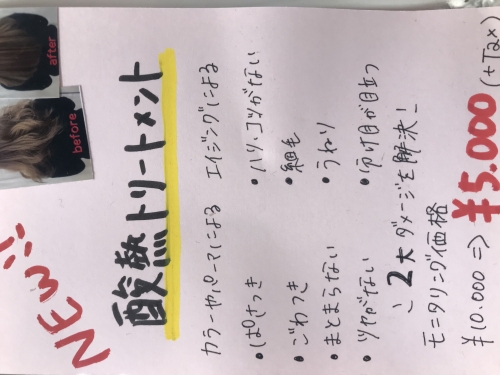 NEW!!
before
after
酸熱トリートメント
カラーやパーマによる
・ぱさつき
・ごわつき
・まとまらない
・ツヤがない
エイジングによる
・ハリ・コシがない
・細毛
・うねり
・分け目が目立つ
2大ダメージを解決!
モニタリング価格
¥10.000 ⇒ ¥5.000 (+Tax)